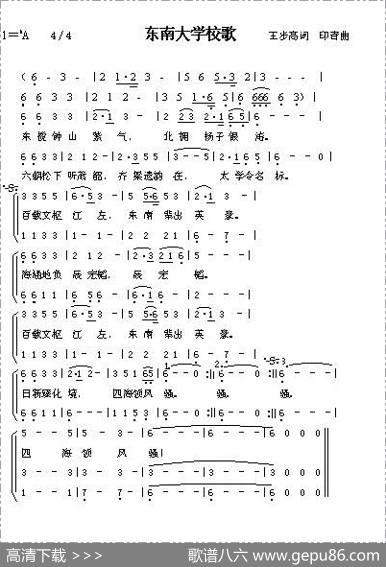 1=♭A 4/4 东南大学校歌 王步高词 印青曲
( 6 - 3 - | 2 1·2 3 - | 5 6 5·3 2 | 3 - - - |
6 6 3 3 | 2 1 2 - | 3 5 1·6 5 | 6 666 6 3 )
6 6 3 3 | 2·1 3 - | 2 23 2·165 | 6 - - - |
东揽钟山 紫气, 北拥 扬子银 涛。
6 6 3 3 | 2 1 2 - | 2·3 5 5 | 3 - - 5 | 2·1 6 5 | 6 - - - |
六朝松下 听箫韶, 齐梁遗韵在, 太学令名标。
3 3 5 5 | 6·5 3 - | 5 5·6 5 3 | 2·1 3 - |
百载文枢 江左, 东南辈出 英豪。
1 1 3 3 | 1 - 1 - | 2 2 2 1 | 6 - 7 - |
6 6 3 3 | 2 1 2 - | 2·3 2 1 6 | 5 - - - |
海涵地负 展宏韬, 展宏韬。
6 6 1 1 | 6 5 6 - | 6·1 6 - | 2 - - - |
3 3 5 5 | 6·5 3 - | 5 5·6 5 3 | 2·1 3 - |
百载文枢 江左, 东南辈出 英豪。
1 1 3 3 | 1 - 1 - | 2 2 2 1 | 6 - 7 - |
6 6 3 3 | 2·1 2 - | 3 5 1 65 | 6 - - 0 :‖ 6 - - 0 :‖ 6 - - - |
日新臻化 境, 四海领风 骚。 骚。 骚。
6 6 1 1 | 6 - - - | 1 1 5 5 | 6 - - 0 :‖ 6 - - 0 :‖ 6 - - - |
5 - - 5 | 5 - 3 - | 6 - - - | 6 - - - | 6 0 0 0 ‖
四 海领 风 骚!
3 - - 3 | 3 - 3 - | 3 - - - | 3 - - - | 3 0 0 0
1 - - 1 | 7 - 7 - | 6 - - - | 6 - - - | 6 0 0 0 ‖
高清下载 >>> 歌谱八六 www.gepu86.com